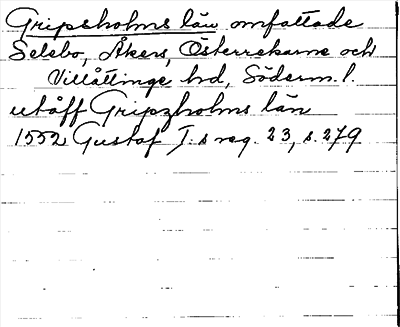 Gripsholms län omfattade
Selebo, Åkers, Österrekarne och
Villåttinge hd, Söderm. l.
utåff Gripzholms län
1552 Gustaf I:s reg. 23, s. 279